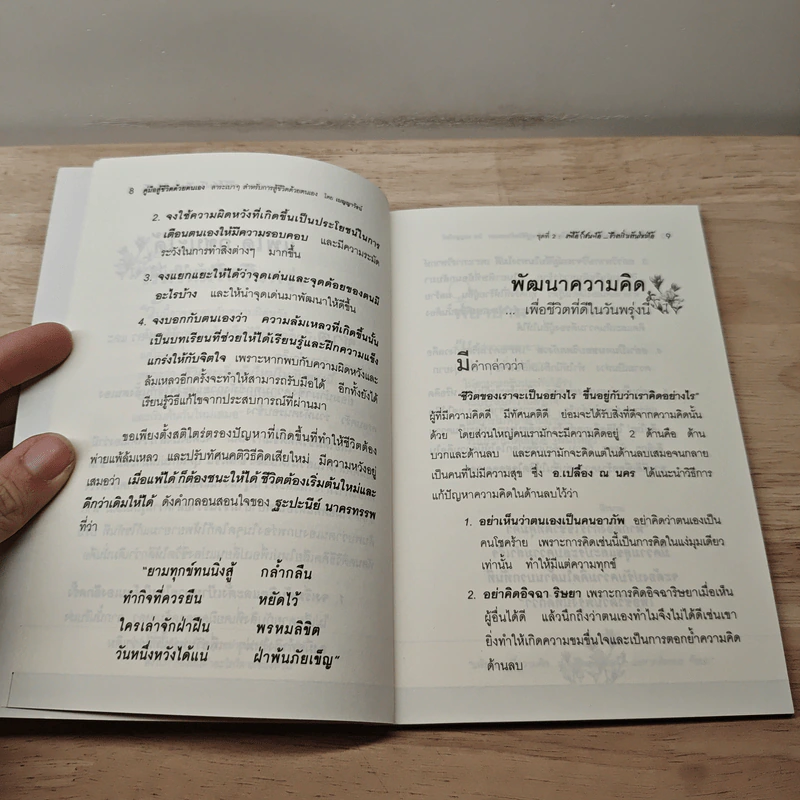 8 คู่มือสู้ชีวิตด้วยตนเอง สาระเบาๆ สำหรับการสู้ชีวิตด้วยตนเอง โดย เบญญารัตน์
2. จงใช้ความผิดหวังที่เกิดขึ้นเป็นประโยชน์ในการ
เตือนตนเองให้มีความรอบคอบ และมีความระมัด
ระวังในการทำสิ่งต่างๆ มากขึ้น
3. จงแยกแยะให้ได้ว่าจุดเด่นและจุดด้อยของตนมี
อะไรบ้าง และให้นำจุดเด่นมาพัฒนาให้ดีขึ้น
4. จงบอกกับตนเองว่า ความล้มเหลวที่เกิดขึ้นนั้น
เป็นบทเรียนที่ช่วยให้ได้เรียนรู้และฝึกความแข็ง
แกร่งให้กับจิตใจ เพราะหากพบกับความผิดหวังและ
ล้มเหลวอีกครั้งจะทำให้สามารถรับมือได้ อีกทั้งยังได้
เรียนรู้วิธีแก้ไขจากประสบการณ์ที่ผ่านมา
ขอเพียงตั้งสติไตร่ตรองปัญหาที่เกิดขึ้นที่ทำให้ชีวิตต้อง
พ่ายแพ้ล้มเหลว และปรับทัศนคติวิธีคิดเสียใหม่ มีความหวังอยู่
เสมอว่า เมื่อแพ้ได้ ก็ต้องชนะให้ได้ ชีวิตต้องเริ่มต้นใหม่และ
ดีกว่าเดิมให้ได้ ดังคำกลอนสอนใจของ ฐะปะนีย์ นาครทรรพ
ที่ว่า
"ยามทุกข์ทนนิ่งสู้ กล้ำกลืน
ทำกิจที่ควรยืน หยัดไว้
ใครเล่าจักฝ่าฝืน พรหมลิขิต
วันหนึ่งหวังได้แน่ ฝ่าพ้นภัยเข็ญ"
ชุดที่ 2 9
พัฒนาความคิด
... เพื่อชีวิตที่ดีในวันพรุ่งนี้
มีคำกล่าวว่า
"ชีวิตของเราจะเป็นอย่างไร ขึ้นอยู่กับว่าเราคิดอย่างไร"
ผู้ที่มีความคิดดี มีทัศนคติดี ย่อมจะได้รับสิ่งที่ดีจากความคิดนั้น
ด้วย โดยส่วนใหญ่คนเรามักจะมีความคิดอยู่ 2 ด้านคือ ด้าน
บวกและด้านลบ และคนเรามักจะคิดแต่ในด้านลบเสมอจนกลาย
เป็นคนที่ไม่มีความสุข ซึ่ง อ.เปลื้อง ณ นคร ได้แนะนำวิธีการ
แก้ปัญหาความคิดในด้านลบไว้ว่า
1. อย่าเห็นว่าตนเองเป็นคนอาภัพ อย่าคิดว่าตนเองเป็น
คนโชคร้าย เพราะการคิดเช่นนี้เป็นการคิดในแง่มุมเดียว
เท่านั้น ทำให้มีแต่ความทุกข์
2. อย่าคิดอิจฉา ริษยา เพราะการคิดอิจฉาริษยาเมื่อเห็น
ผู้อื่นได้ดี แล้วนึกถึงว่าตนเองทำไมจึงไม่ได้ดีเช่นเขา
ยิ่งทำให้เกิดความขมขื่นใจและเป็นการตอกย้ำความคิด
ด้านลบ